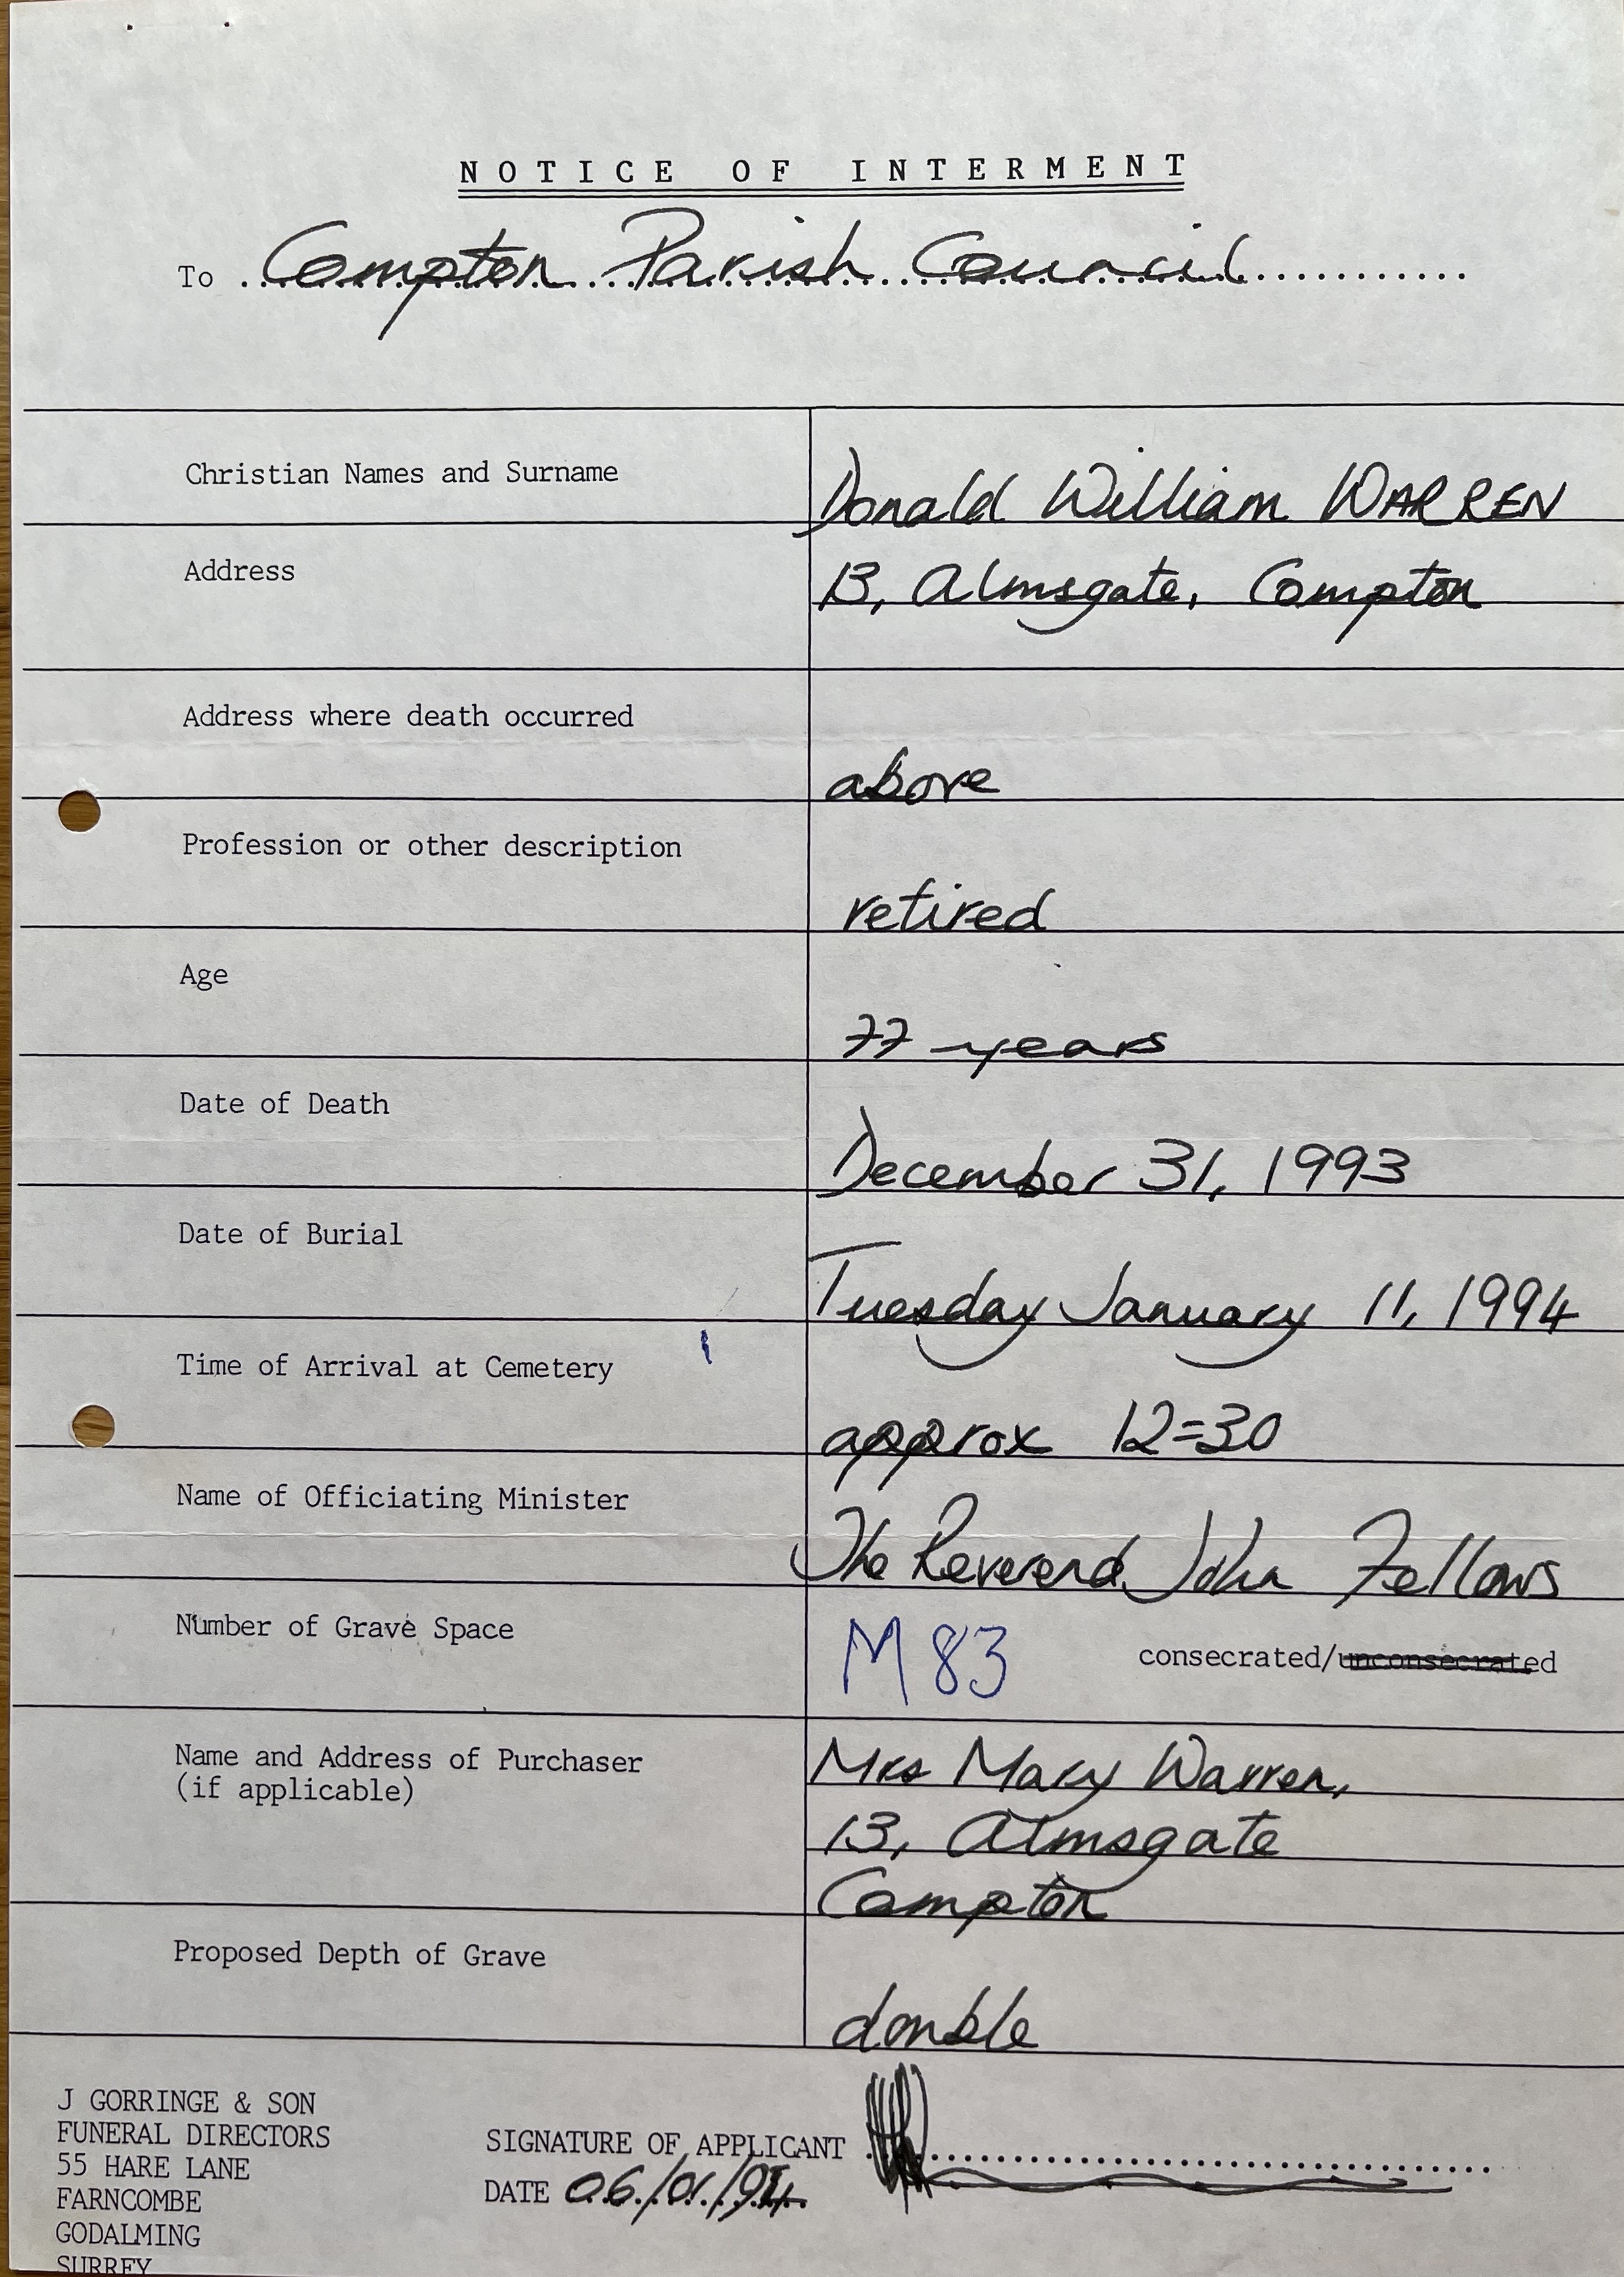 NOTICE OF INTERMENT
To Compton Parish Council
Christian Names and Surname Donald William WARREN
Address 13, Almsgate, Compton
Address where death occurred
above
Profession or other description
retired
Age
77 years
Date of Death
December 31, 1993
Date of Burial
Tuesday January 11, 1994
Time of Arrival at Cemetery
approx 12=30
Name of Officiating Minister
The Reverend John Fellows
Number of Grave Space M 83 consecrated/unconsecrated
Name and Address of Purchaser Mrs Mary Warren,
(if applicable)
13, Almsgate
Compton
Proposed Depth of Grave
double
J GORRINGE & SON
FUNERAL DIRECTORS
55 HARE LANE
FARNCOMBE
GODALMING
SURREY
SIGNATURE OF APPLICANT
DATE 06/01/94